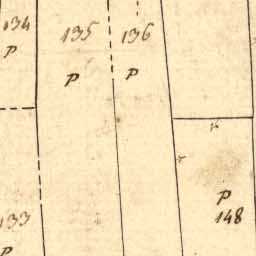 134
P
135
P
136
P
P
148
133
P